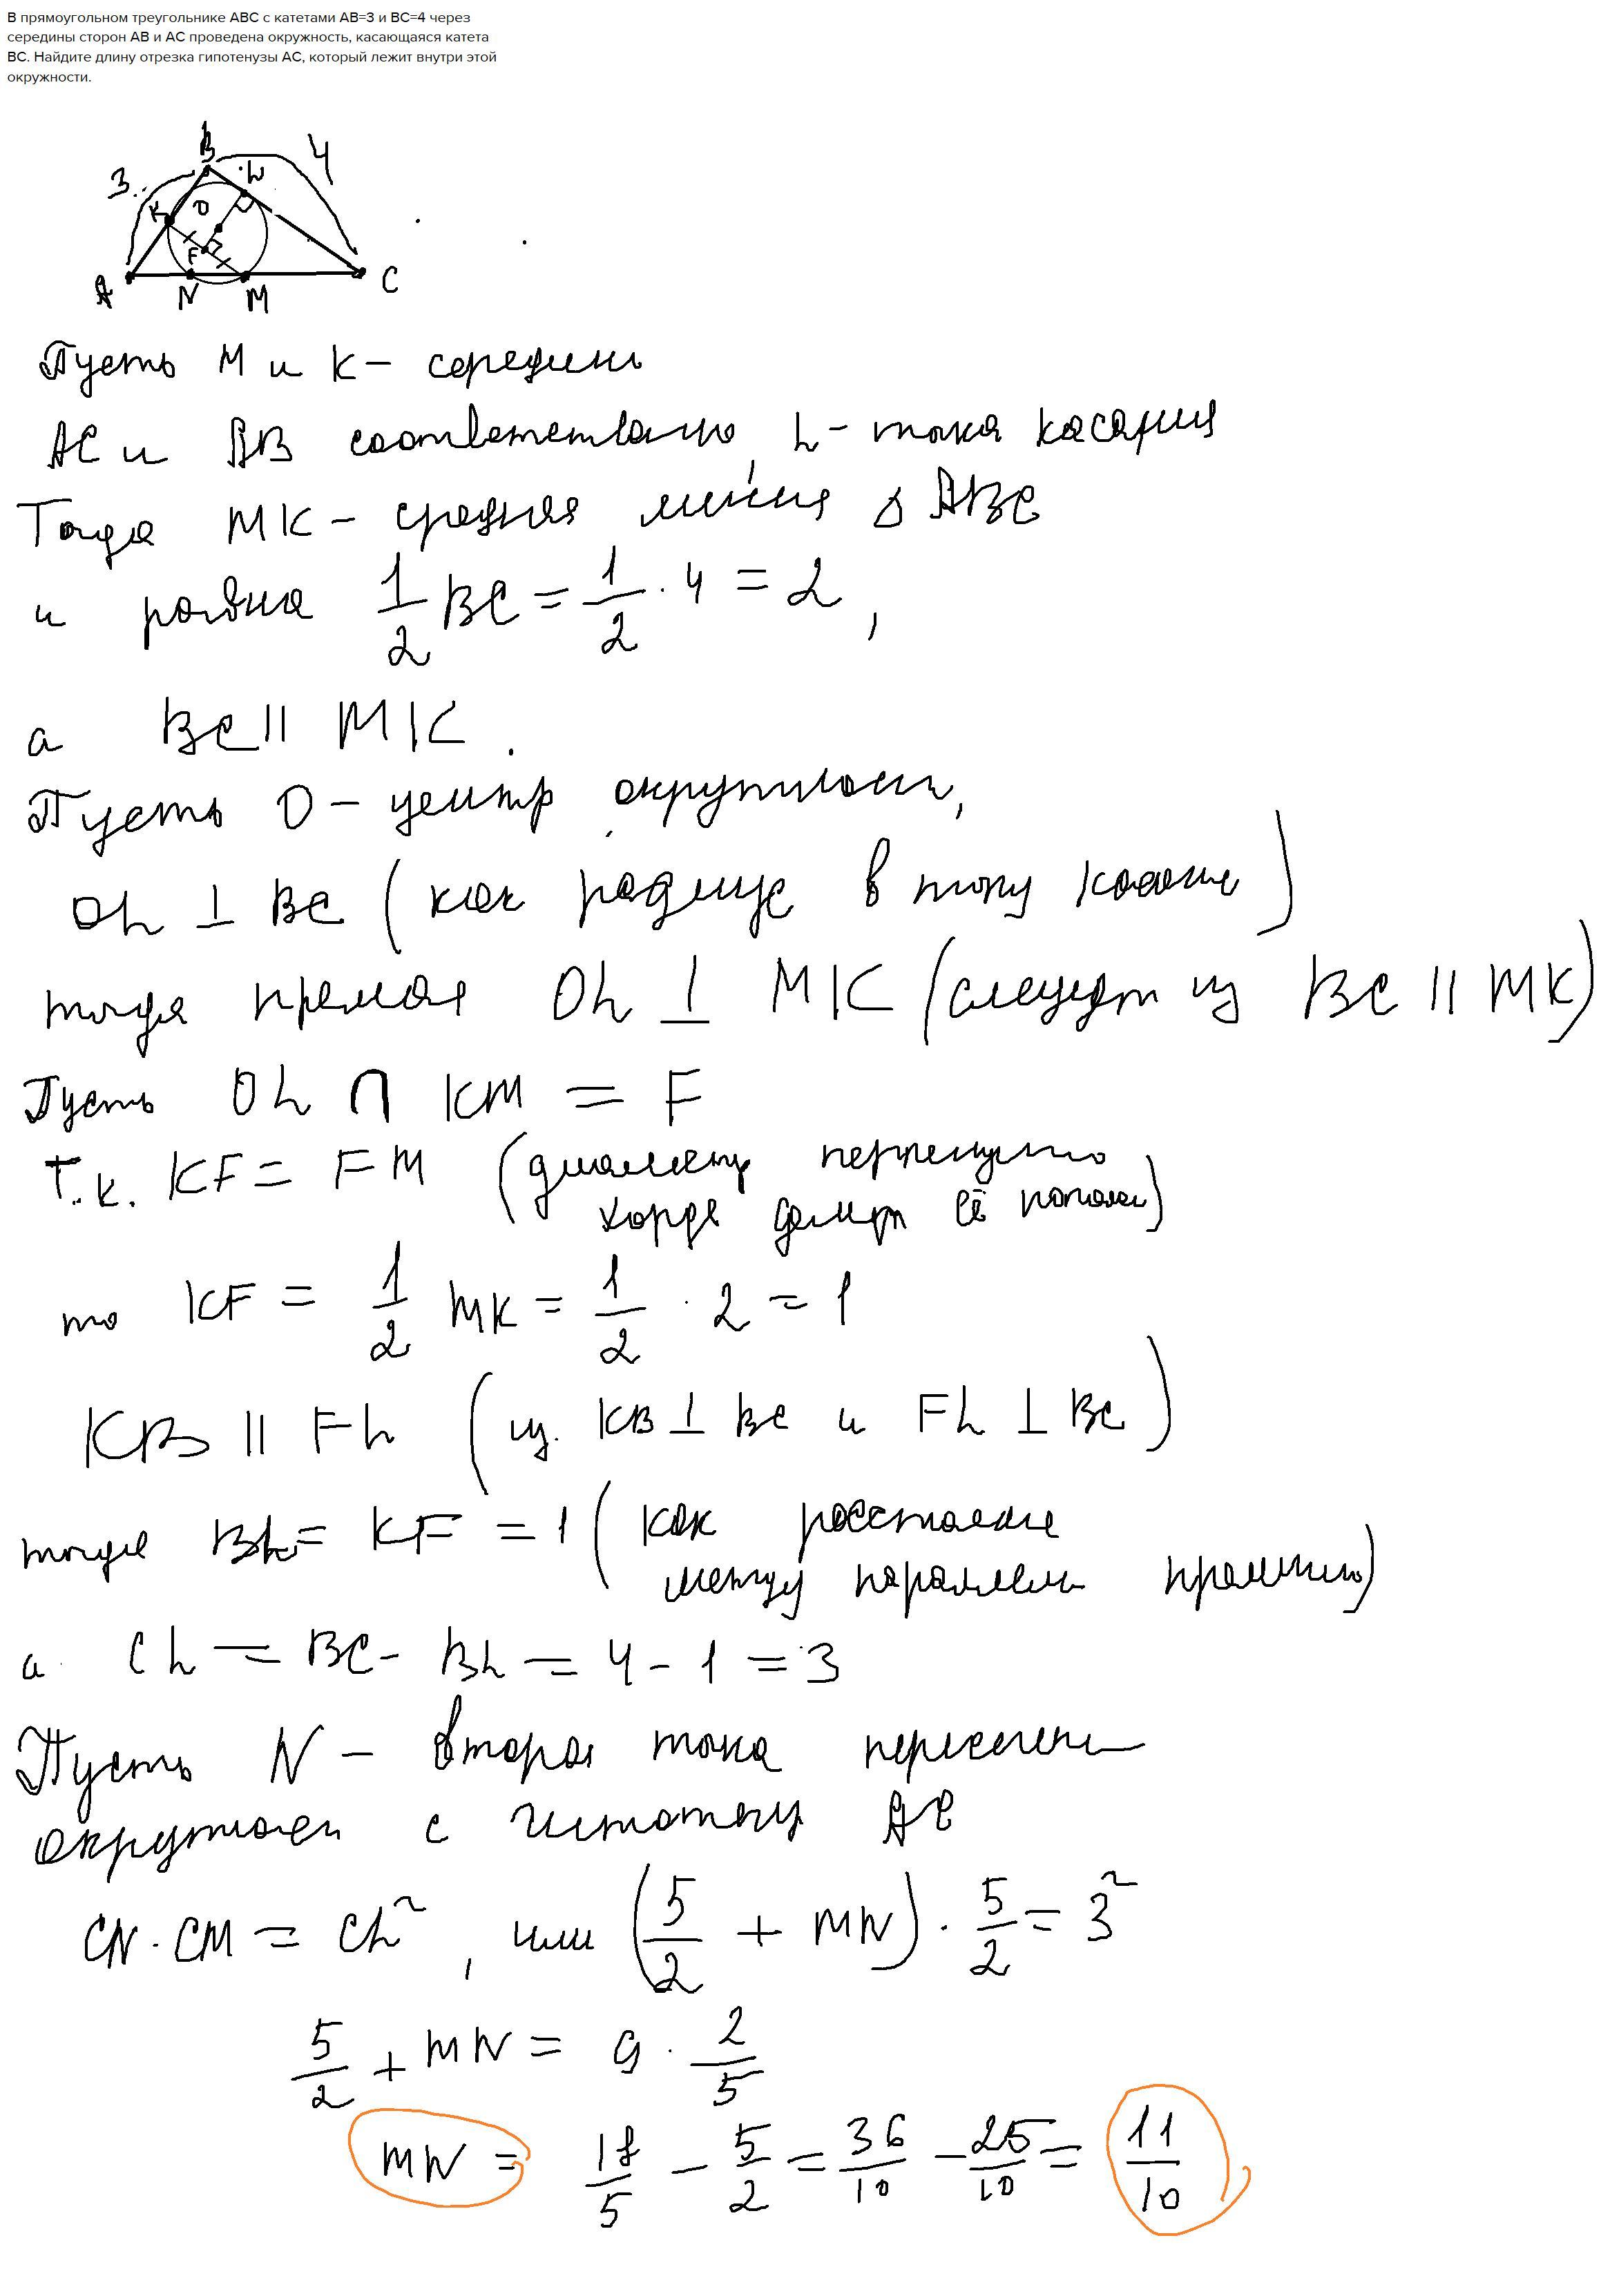 В прямоугольном треугольнике ABC с катетами AB=3 и BC=4 через
середины сторон AB и AC проведена окружность, касающаяся катета
BC. Найдите длину отрезка гипотенузы AC, который лежит внутри этой
окружности.
B
4
L
3
K
O
F
A
N
M
C
Пусть M и K – середины
AC и AB соответственно, L – точка касания
Тогда MK – средняя линия Δ ABC
и равна 1/2 BC = 1/2 · 4 = 2,
а BC || MK.
Пусть O – центр окружности,
OL ⊥ BC (как радиус в точку касания)
тогда прямая OL ⊥ MK (следует из BC || MK)
Пусть OL ∩ KM = F
Т.к. KF = FM (диаметр перпендикулярно
хорде делит её пополам)
то KF = 1/2 MK = 1/2 · 2 = 1
KB || FL (из KB ⊥ BC и FL ⊥ BC)
тогда BL = KF = 1 (как расстояние
между параллельн прямыми)
а CL = BC - BL = 4 - 1 = 3
Пусть N – вторая точка пересечени
окружности с гипотенузы AC
CN · CM = CL², или (5/2 + MN) · 5/2 = 3²
5/2 + MN = 9 · 2/5
MN = 18/5 - 5/2 = 36/10 - 25/10 = 11/10